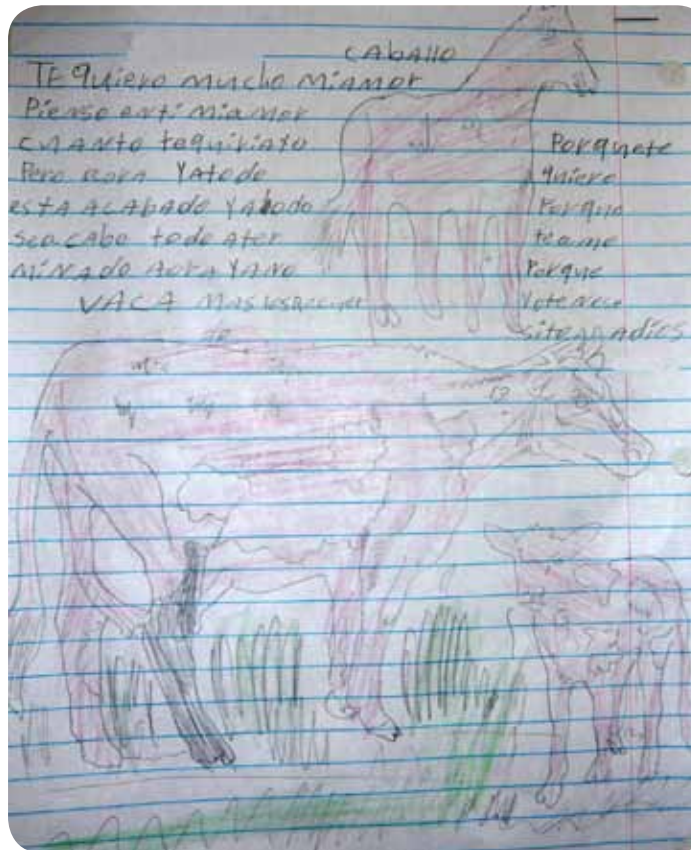 CABALLO
TE quiero mucho miamor
Pienso enti miamor
CUANTO tequiriayo
Pero aora Yatodo
esta ACABADO Yatodo
seacabo todo ater
MiNADO Aora YaNO
VACA MAS
Porquete
quiero
Porque
teame
Porque
adios